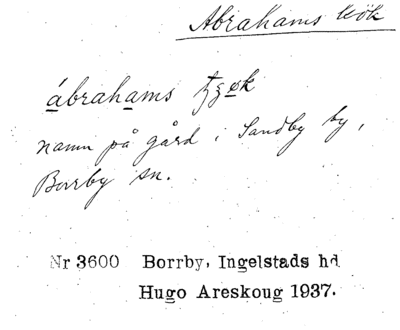 Abrahams kök
ábrahams tɟøk
namn på gård i Sandby by,
Borrby sn.
Nr 3600 Borrby, Ingelstads hd
Hugo Areskoug 1937.